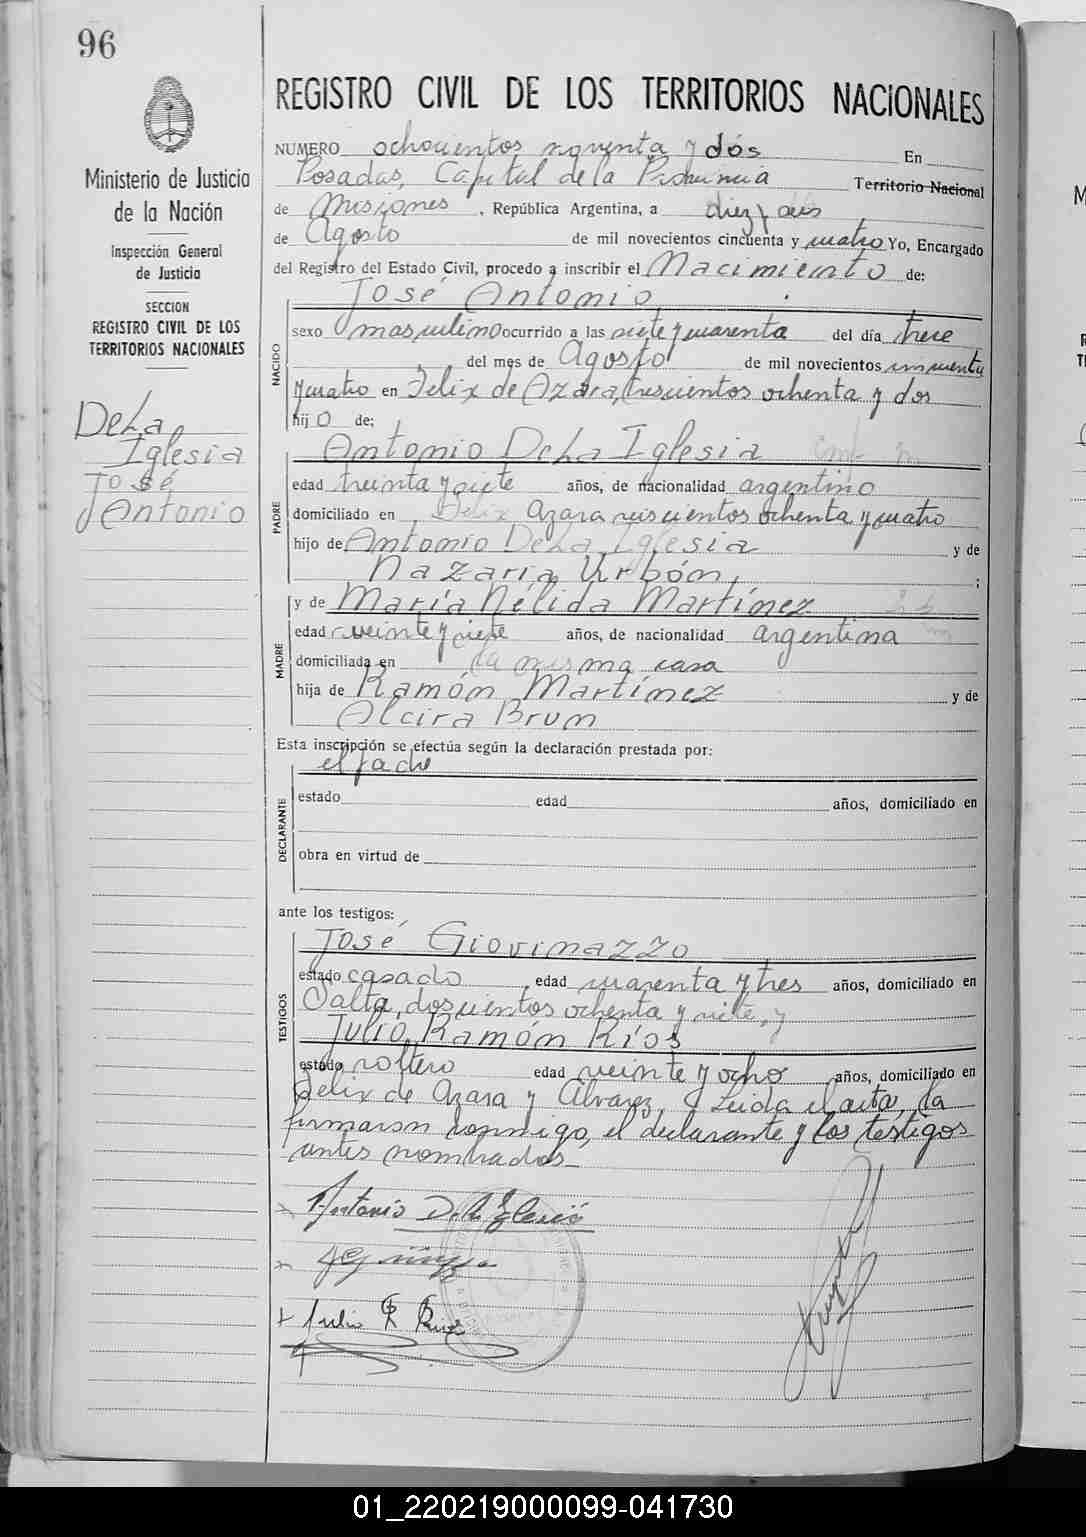 96
Ministerio de Justicia
de la Nación
Inspección General
de Justicia
SECCION
REGISTRO CIVIL DE LOS
TERRITORIOS NACIONALES
De La
Iglesia
José
Antonio
REGISTRO CIVIL DE LOS TERRITORIOS NACIONALES
NUMERO ochocientos noventa y dós En
Posadas, Capital de la Provincia Territorio Nacional
de Misiones, República Argentina, a diez y seis
de Agosto de mil novecientos cincuenta y cuatro Yo, Encargado
del Registro del Estado Civil, procedo a inscribir el Nacimiento de:
José Antonio
NACIDO
sexo masculino ocurrido a las siete y cuarenta del día trece
del mes de Agosto de mil novecientos cincuenta
y cuatro en Felix de Azara, trescientos ochenta y dos
hijo de;
PADRE
Antonio De La Iglesia
edad treinta y siete años, de nacionalidad argentino
domiciliado en Felix Azara seiscientos ochenta y cuatro
hijo de Antonio De La Iglesia y de
Nazaria Urbón, ;
MADRE
y de María Nélida Martínez
edad veinte y siete años, de nacionalidad argentina
domiciliada en la misma casa
hija de Ramón Martínez y de
Alcira Brun
Esta inscripción se efectúa según la declaración prestada por:
el padre
DECLARANTE
estado edad años, domiciliado en
obra en virtud de
ante los testigos:
TESTIGOS
José Giovinazzo
estado casado, edad cuarenta y tres años, domiciliado en
Salta, doscientos ochenta y siete, y
Julio Ramón Ríos
estado soltero edad veinte y ocho años, domiciliado en
Felix de Azara y Alvarez, Leida el acta, la
firmaron conmigo, el declarante y los testigos
antes nombrados
Antonio De la Iglesia
Julio R Rios
01_220219000099-041730